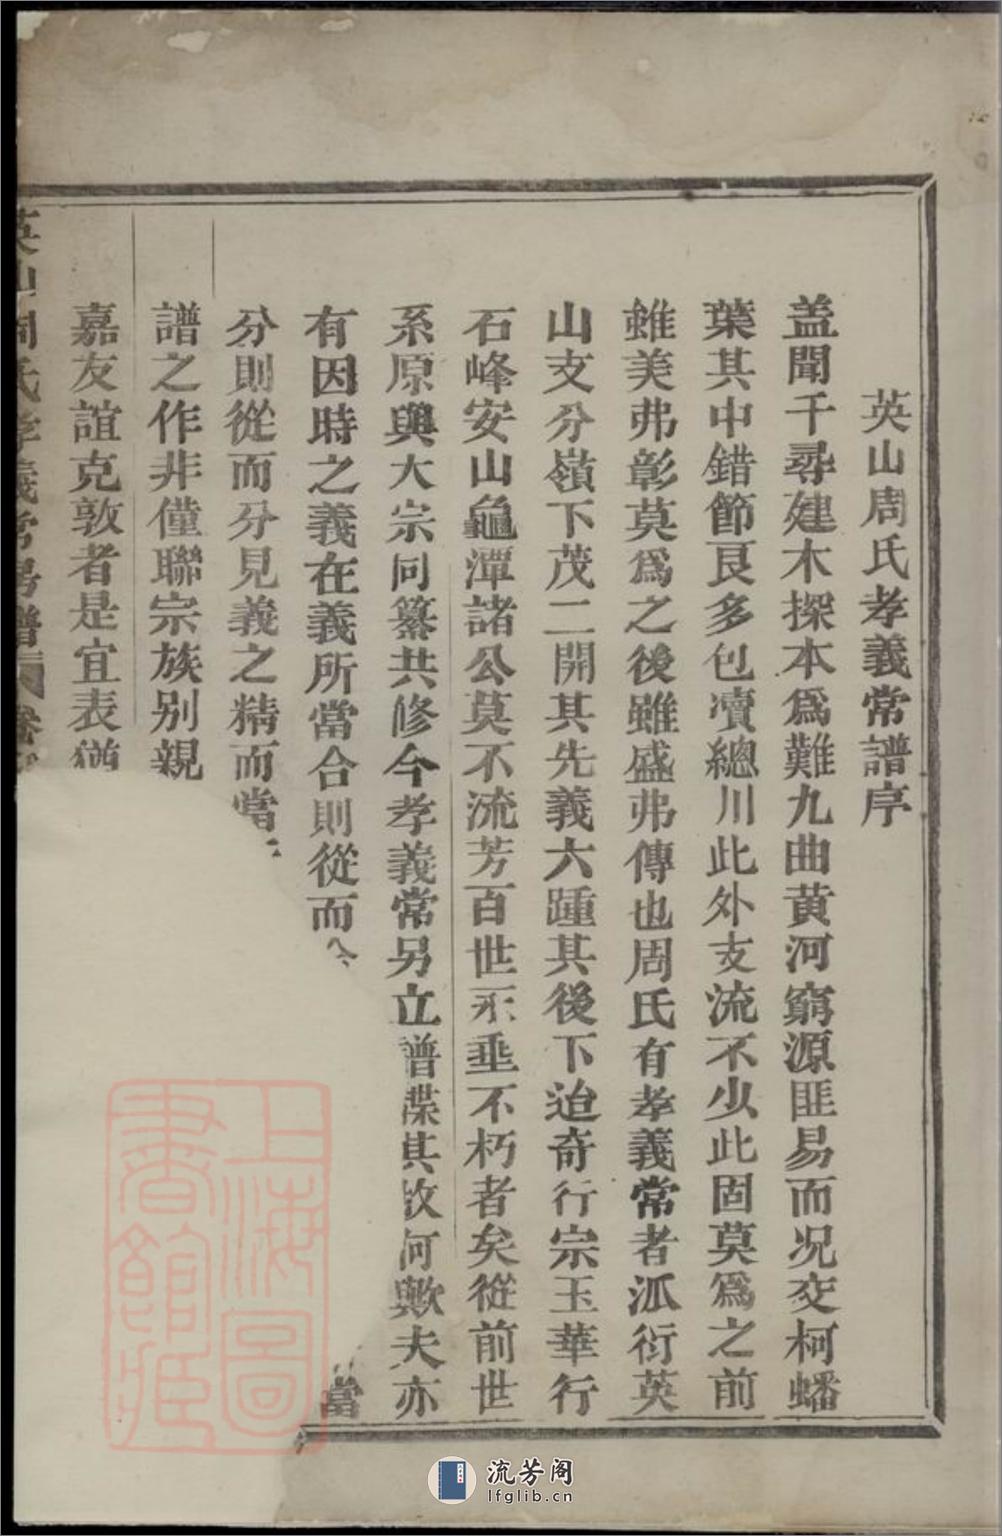 英山周氏孝義常譜序
盖聞千尋建木探本爲難九曲黄河窮源匪易而况交柯蟠
葉其中錯節艮多包瀆總川此外支流不少此固莫爲之前
雖美弗彰莫爲之後雖盛弗傳也周氏有孝義常者泒衍英
山支分嶺下茂二開其先義六踵其後下迨奇行宗玉華行
石峰安山龜潭諸公莫不流芳百世永垂不朽者矣從前世
系原與大宗同纂共修今孝義常另立譜牒其故何歟夫亦
有因時之義在義所當合則從而合 當
分則從而分見義之精而當
譜之作非僅聯宗族别親
嘉友誼克敦者是宜表猶
英山周氏孝義常房譜 卷
上海圖書館藏
流芳阁
lfglib.cn